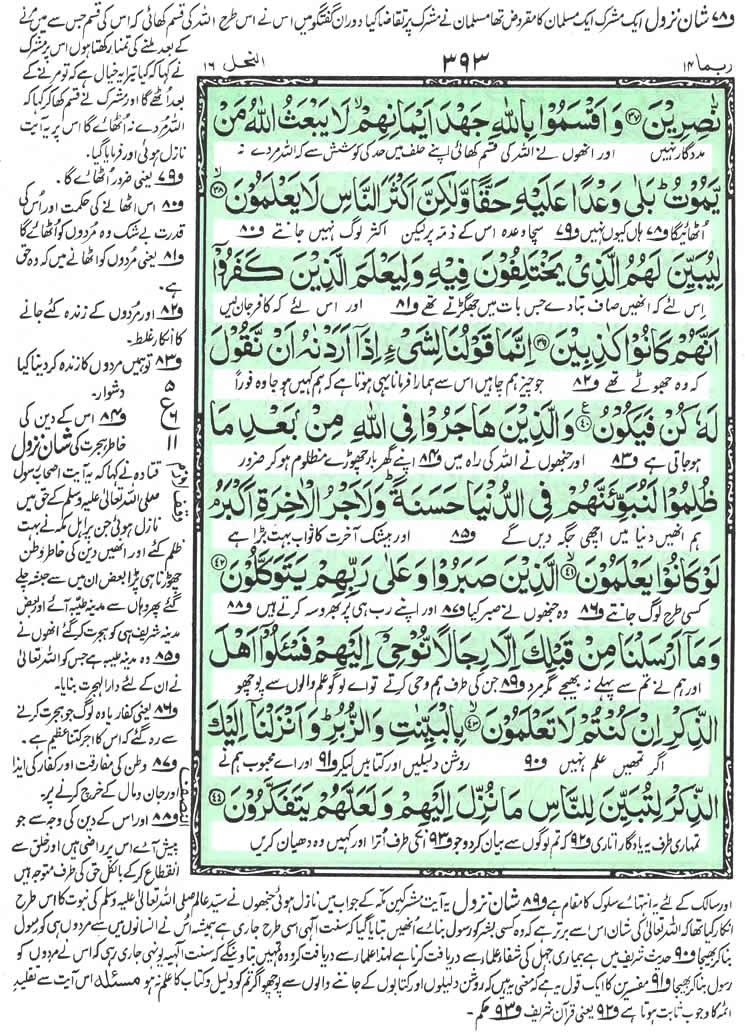 و۷۸ شان نزول ایک مشرک ایک مسلمان کا مقروض تھا مسلمان نے مشرک پر تقاضا کیا دوران گفتگو میں اس نے اس طرح اللہ کی قسم کھائی کہ اس کی قسم جس سے میں مرنے
کے بعد ملنے کی تمنا رکھتا ہوں اس پر مشرک
نے کہا کہ کیا تیرا یہ خیال ہے کہ تو مرنے کے
بعد اٹھے گا اور مشرک نے قسم کھا کر کہا کہ
اللہ مردے نہ اٹھائے گا اس پر یہ آیت
نازل ہوئی اور فرمایا گیا۔
و۷۹ یعنی ضرور اٹھائے گا۔
و۸۰ اس اٹھانے کی حکمت اور اس کی
قدرت بے شک وہ مردوں کو اٹھائے گا
و۸۱ یعنی مردوں کو اٹھانے میں کہ وہ حق
ہے۔
و۸۲ اور مردوں کے زندہ کئے جانے
کا انکار غلط۔
و۸۳ تو ہمیں مردوں کا زندہ کر دینا کیا
دشوار۔
و۸۴ اس کے دین کی
خاطر ہجرت کی شان نزول
قتادہ نے کہا کہ یہ آیت اصحاب رسول
صلی اللہ تعالیٰ علیہ وسلم کے حق میں
نازل ہوئی جن پر اہل مکہ نے بہت
ظلم کئے اور انھیں دین کی خاطر وطن
چھوڑنا ہی پڑا بعض ان میں سے حبشہ چلے
گئے پھر وہاں سے مدینہ طیبہ آئے اور بعض
مدینہ شریف ہی کو ہجرت کر گئے انھوں نے
و۸۵ وہ مدینہ طیبہ ہے جس کو اللہ تعالیٰ
نے ان کے لئے دار الہجرت بنایا۔
و۸۶ یعنی کفار یا وہ لوگ جو ہجرت کرنے
سے رہ گئے کہ اس کا اجر کتنا عظیم ہے۔
و۸۷ وطن کی مفارقت اور کفار کی ایذا
اور جان و مال کے خرچ کرنے پر۔
و۸۸ اور اس کے دین کی وجہ سے جو
پیش آئے اس پر راضی ہیں اور خلق سے
انقطاع کر کے بالکل حق کی طرف متوجہ ہیں
ربما ۱۴
۳۹۳
النحل ۱۶
نّٰصِرِیْنَ ﴿۳۷﴾ وَ اَقْسَمُوْا بِاللّٰهِ جَهْدَ اَیْمَانِهِمْ ۙ لَا یَبْعَثُ اللّٰهُ مَنْ
مددگار نہیں اور انھوں نے اللہ کی قسم کھائی اپنے حلف میں حد کی کوشش سے کہ اللہ مردے نہ
یَّمُوْتُ ؕ بَلٰى وَعْدًا عَلَیْهِ حَقًّا وَّلٰكِنَّ اَكْثَرَ النَّاسِ لَا یَعْلَمُوْنَ ﴿۳۸﴾ ۙ
اٹھائیگا و۷۸ ہاں کیوں نہیں و۷۹ سچا وعدہ اس کے ذمہ پر لیکن اکثر لوگ نہیں جانتے و۸۰
لِیُبَیِّنَ لَهُمُ الَّذِیْ یَخْتَلِفُوْنَ فِیْهِ وَلِیَعْلَمَ الَّذِیْنَ كَفَرُوْۤا
اس لئے کہ انھیں صاف بتا دے جس بات میں جھگڑتے تھے و۸۱ اور اس لئے کہ کافر جان لیں
اَنَّهُمْ كَانُوْا كٰذِبِیْنَ ﴿۳۹﴾ اِنَّمَا قَوْلُنَا لِشَیْءٍ اِذَاۤ اَرَدْنٰهُ اَنْ نَّقُوْلَ
کہ وہ جھوٹے تھے و۸۲ جو چیز ہم چاہیں اس سے ہمارا فرمانا یہی ہوتا ہے کہ ہم کہیں ہو جا وہ فوراً
لَهٗ كُنْ فَیَكُوْنُ ﴿۴۰﴾ ع وَالَّذِیْنَ هَاجَرُوْا فِی اللّٰهِ مِنْۢ بَعْدِ مَا
ہو جاتی ہے و۸۳ اور جنھوں نے اللہ کی راہ میں و۸۴ اپنے گھر بار چھوڑے مظلوم ہو کر ضرور
ظُلِمُوْا لَنُبَوِّئَنَّهُمْ فِی الدُّنْیَا حَسَنَةً ؕ وَلَاَجْرُ الْاٰخِرَةِ اَكْبَرُ ۘ
ہم انھیں دنیا میں اچھی جگہ دیں گے و۸۵ اور بیشک آخرت کا ثواب بہت بڑا ہے
لَوْ كَانُوْا یَعْلَمُوْنَ ﴿۴۱﴾ ۙ الَّذِیْنَ صَبَرُوْا وَعَلٰى رَبِّهِمْ یَتَوَكَّلُوْنَ ﴿۴۲﴾
کسی طرح لوگ جانتے و۸۶ وہ جنھوں نے صبر کیا و۸۷ اور اپنے رب ہی پر بھروسہ کرتے ہیں و۸۸
وَمَاۤ اَرْسَلْنَا مِنْ قَبْلِكَ اِلَّا رِجَالًا نُّوْحِیْۤ اِلَیْهِمْ فَسْـَٔلُوْۤا اَهْلَ
اور ہم نے تم سے پہلے نہ بھیجے مگر مرد و۸۹ جن کی طرف ہم وحی کرتے تو اے لوگو علم والوں سے پوچھو
الذِّكْرِ اِنْ كُنْتُمْ لَا تَعْلَمُوْنَ ﴿۴۳﴾ ۙ بِالْبَیِّنٰتِ وَالزُّبُرِ ؕ وَاَنْزَلْنَاۤ اِلَیْكَ
اگر تمھیں علم نہیں و۹۰ روشن دلیلیں اور کتابیں لیکر و۹۱ اور اے محبوب ہم نے
الذِّكْرَ لِتُبَیِّنَ لِلنَّاسِ مَا نُزِّلَ اِلَیْهِمْ وَلَعَلَّهُمْ یَتَفَكَّرُوْنَ ﴿۴۴﴾
تمہاری طرف یہ یادگار اتاری و۹۲ کہ تم لوگوں سے بیان کر دو جو و۹۳ انکی طرف اترا اور کہیں وہ دھیان کریں
۵
ع
۶
۱۱
وقف لازم
النصف
اور سالک کے لئے یہ انتہائے سلوک کا مقام ہے و۸۹ شان نزول یہ آیت مشرکین مکہ کے جواب میں نازل ہوئی جنھوں نے سید عالم صلی اللہ تعالیٰ علیہ وسلم کی نبوت کا اس طرح
انکار کیا تھا کہ اللہ تعالیٰ کی شان اس سے برتر ہے کہ وہ کسی بشر کو رسول بنائے انھیں بتایا گیا کہ سنت الٰہی اسی طرح جاری ہے ہمیشہ اس نے انسانوں میں سے مردوں ہی کو رسول
بنا کر بھیجا و۹۰ حدیث شریف میں ہے بیماری جہل کی شفا علماء سے دریافت کرنا ہے لہٰذا علماء سے دریافت کرو وہ تمہیں بتا دینگے کہ سنت الٰہیہ یونہی جاری رہی کہ اس نے مردوں کو
رسول بنا کر بھیجا و۹۱ مفسرین کا ایک قول یہ ہے کہ معنی یہ ہیں کہ روشن دلیلوں اور کتابوں کے جاننے والوں سے پوچھو اگر تم کو دلیل و کتاب کا علم نہ ہو مسئلہ اس آیت سے تقلید
ائمہ کا وجوب ثابت ہوتا ہے و۹۲ یعنی قرآن شریف و۹۳ حکم۔